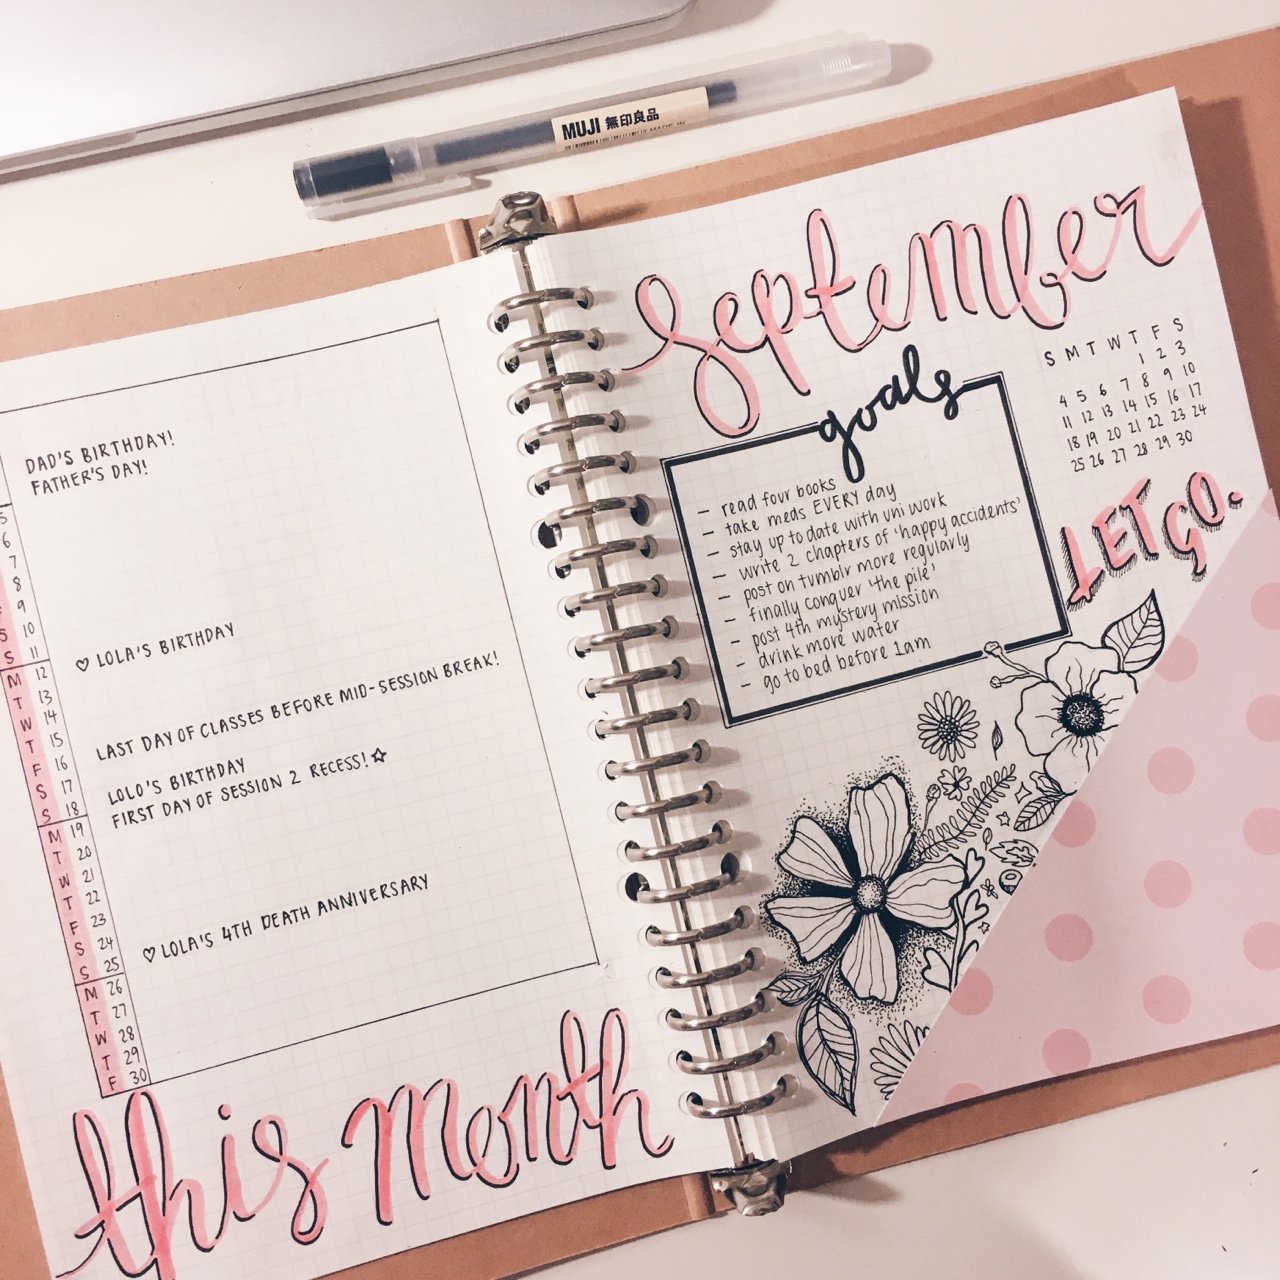 MUJI 無印良品
DAD'S BIRTHDAY!
FATHER'S DAY!
5
6
7
8
9
S 10
S 11
M 12
T 13
W 14
T 15
F 16
S 17
S 18
M 19
T 20
W 21
T 22
F 23
S 24
S 25
M 26
T 27
W 28
T 29
F 30
♡ LOLA'S BIRTHDAY
LAST DAY OF CLASSES BEFORE MID-SESSION BREAK!
LOLO'S BIRTHDAY
FIRST DAY OF SESSION 2 RECESS! ☆
♡ LOLA'S 4TH DEATH ANNIVERSARY
this month
September
goals
- read four books
- take meds EVERY day
- stay up to date with uni work
- write 2 chapters of 'happy accidents'
- post on tumblr more regularly
- finally conquer 'the pile'
- post 4th mystery mission
- drink more water
- go to bed before 1am
S M T W T F S
1 2 3
4 5 6 7 8 9 10
11 12 13 14 15 16 17
18 19 20 21 22 23 24
25 26 27 28 29 30
LET GO.